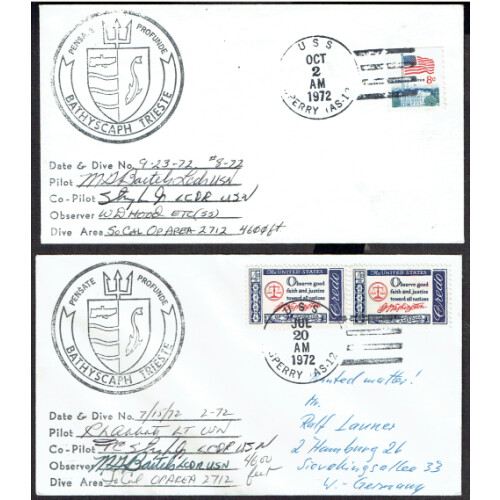 PENSATE PROFUNDE
BATHYSCAPH TRIESTE
USS
OCT
2
AM
1972
SPERRY (AS-12
8c
Date & Dive No. 9-23-72 #8-72
Pilot M G Bartels LCDR USN
Co-Pilot LCDR USN
Observer W D Hood ETC(SS)
Dive Area So Cal OP AREA 2712 4600 ft
PENSATE PROFUNDE
BATHYSCAPH TRIESTE
The UNITED STATES
Observe good
faith and justice
toward all nations
G Washington
Credo
The UNITED STATES
Observe good
faith and justice
toward all nations
G Washington
Credo
USS
JUL
20
AM
1972
SPERRY (AS-12
Printed matter!
Mr.
Ralf Launer
2 Hamburg 26
Sievekingsallee 33
W.-Germany
Date & Dive No. 7/15/72 2-72
Pilot LT USN
Co-Pilot LCDR USN
Observer M G Bartels LCDR USN 4600
Dive Area So Cal OP AREA 2712 feet